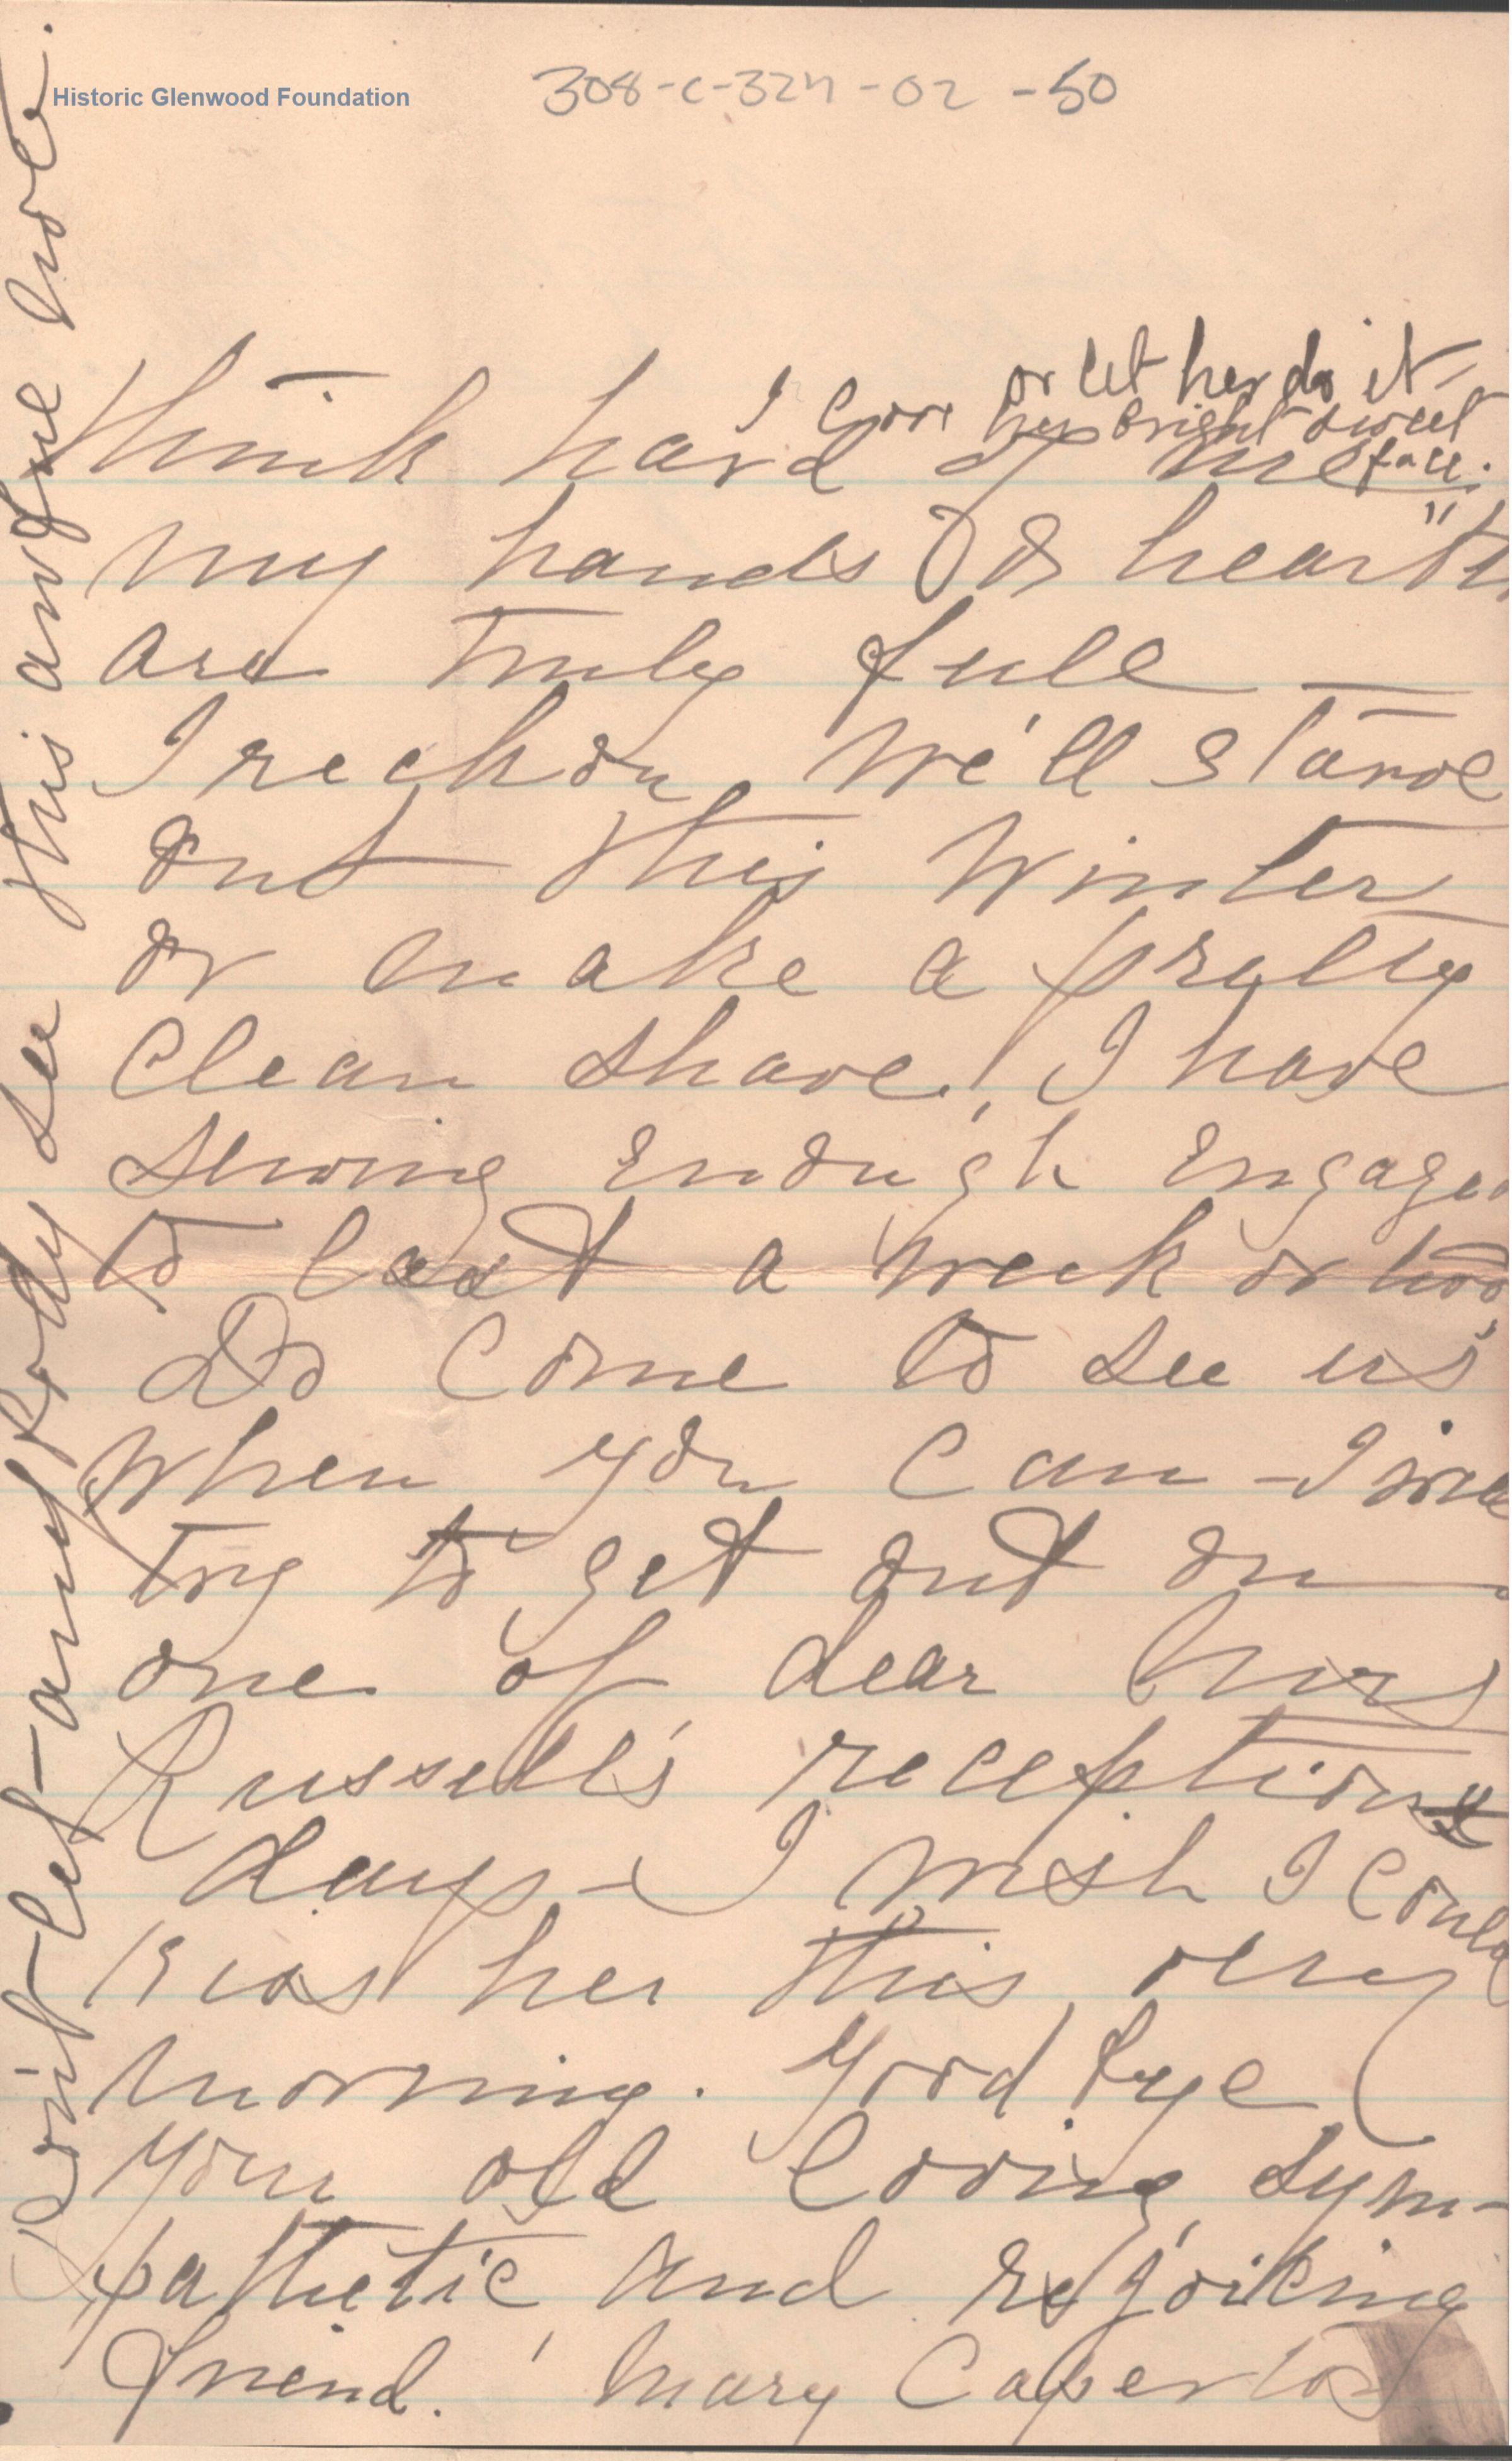 Historic Glenwood Foundation
308-C-32n-02-50
or let her do it -
I love her bright sweet
face.
think hard of me
my hands & heart
are truly full —
I reckon we'll starve
out this Winter
or make a pretty
Clean shave! I have
sewing enough engaged
to last a week or two,
Do come to see us
when you can - I
try to get out on
one of dear Mrs
Russell's reception
days - I wish I could
Kiss her this very
morning. Good bye
Your old loving, sym-
pathetic and rejoicing
friend. Mary Caperton
Don't let - any body see this and give love.